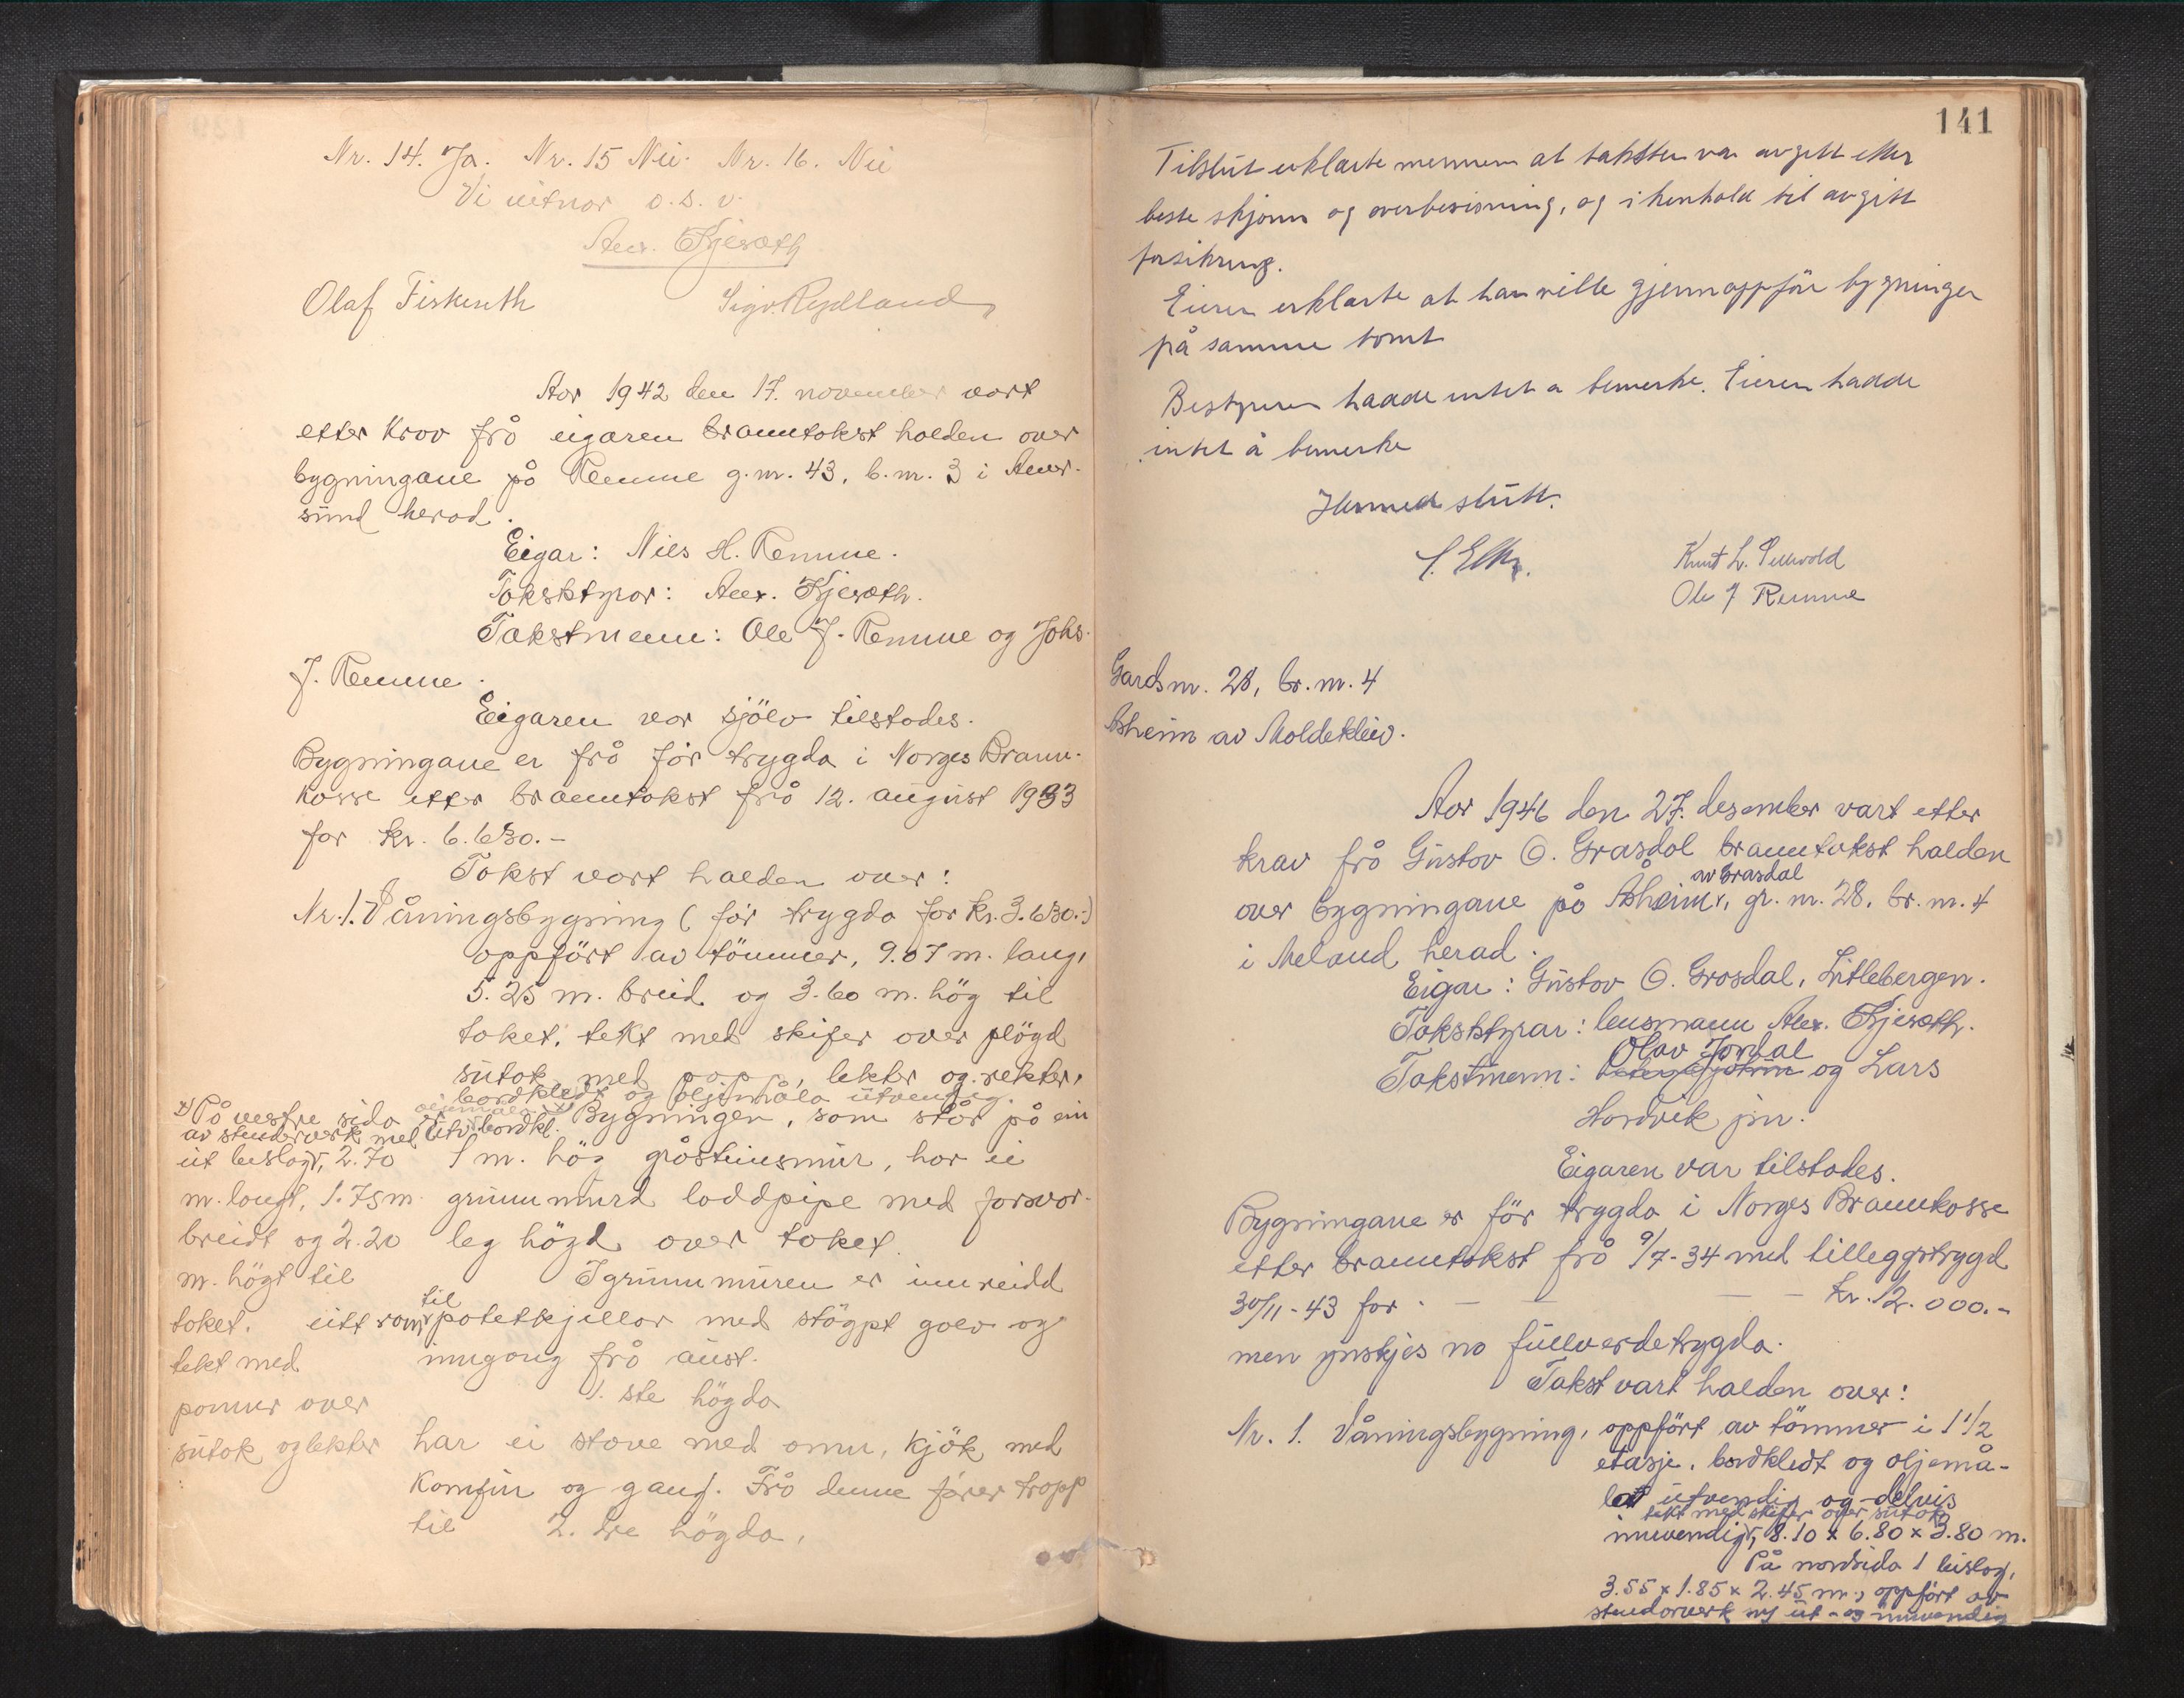 Nr. 14. Ja. Nr. 15 Nei. Nr. 16. Nei
Vi vitnar o.s.v.
Alex. Kjeræth
Olaf Fiskeseth Sigv. Rydland
Aar 1942 den 17. november vart
etter krav frå eigaren branntakst halden over
bygningane på Remme g.nr. 43, b.nr. 3 i Alver-
sund herad.
Eigar: Nils H. Remme.
Takststyrar: Alex. Kjeræth.
Takstmenn: Ole J. Remme og Johs.
J. Remme.
Eigaren var sjölv tilstades.
Bygningane er frå för trygda i Norges Brann-
kasse etter branntakst frå 12. august 1933
for kr. 6.630.-
Takst vart halden over:
Nr. 1. Våningsbygning (för trygda for kr. 3.630.-)
oppfört av tömmer, 9.07 m. lang,
5.25 m. breid og 3.60 m. hög til
taket, tekt med skifer over plögd
sutak med papp, lekter og rekter,
bordkledt og oljemåla utvendig.
Bygningen, som står på ein
1 m. hög gråsteinsmur, har ei
grunnmura loddpipe med forsvar-
leg högd over taket.
I grunnmuren er innreidd
eitt rom til potetkjellar med stöypt golv og
inngang frå aust.
x) På vestre sida er
av stenderverk med utv. bordkl.
eit beslag, 2.70
m. langt, 1.75 m.
breidt og 2.20
m. högt til
taket.
tekt med
panner over
sutak og lekter
1. ste högda
har ei stove med omn, kjök med
komfyr og gang. Frå denne förer tropp
til 2. dre högda,
141
Tilslut erklærte mennene at taksten var avgitt etter
beste skjønn og overbevisning, og i henhold til avgitt
forsikring.
Eieren erklærte at han ville gjennoppføre bygninger
på samme tomt
Bestyreren hadde intet å bemerke. Eieren hadde
intet å bemerke
Hermed slutt.
Ole J Remme
Gardsnr. 28, br.nr. 4
Åsheim av Moldekleiv.
Aar 1946 den 27. desember vart etter
krav frå Gustov O. Grasdal branntakst halden
over bygningane på Åsheim av Grasdal, gr. nr. 28, br. nr. 4
i Meland herad.
Eigar: Gustov O. Grasdal, Litlebergen.
Takststyrar: lensmann Alex. Kjeræth.
Takstmenn: Olav Jordal og Lars
Hordvik jnr.
Eigaren var tilstades.
Bygningane er för trygda i Norges Brannkasse
etter branntakst frå 9/7-34 med tilleggstrygd
30/11-43 for - - - kr. 12.000.-
men ynskjes no fullverdetrygda.
Takst vart halden over:
Nr. 1. Våningsbygning, oppfört av tömmer i 1 1/2
etasje, bordkledt og oljemå-
lat utvendig og delvis
innvendig, tekt med skifer over sutak, 8.10 x 6.80 x 3.80 m.
På nordsida 1 bislag,
3.55 x 1.85 x 2.45 m., oppfört av
stenderverk ut- og innvendig